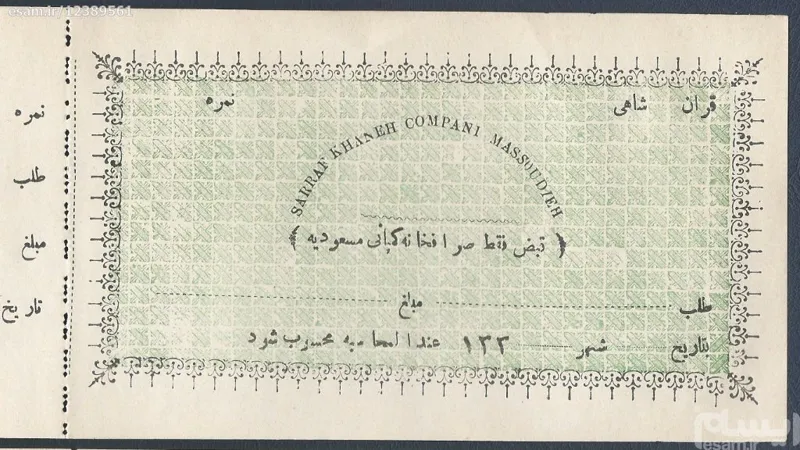 esam.ir/12389561
قران شاهی نمره
SARRAF KHANEH COMPANI MASSOUDIEH
﴿ قبض فقط صرافخانه کمپانی مسعودیه ﴾
طلب مبلغ
بتاریخ شهر ۱۳۳ عندالمحاسبه محسوب شود
نمره
طلب
مبلغ
تاریخ
ایسام
esam.ir